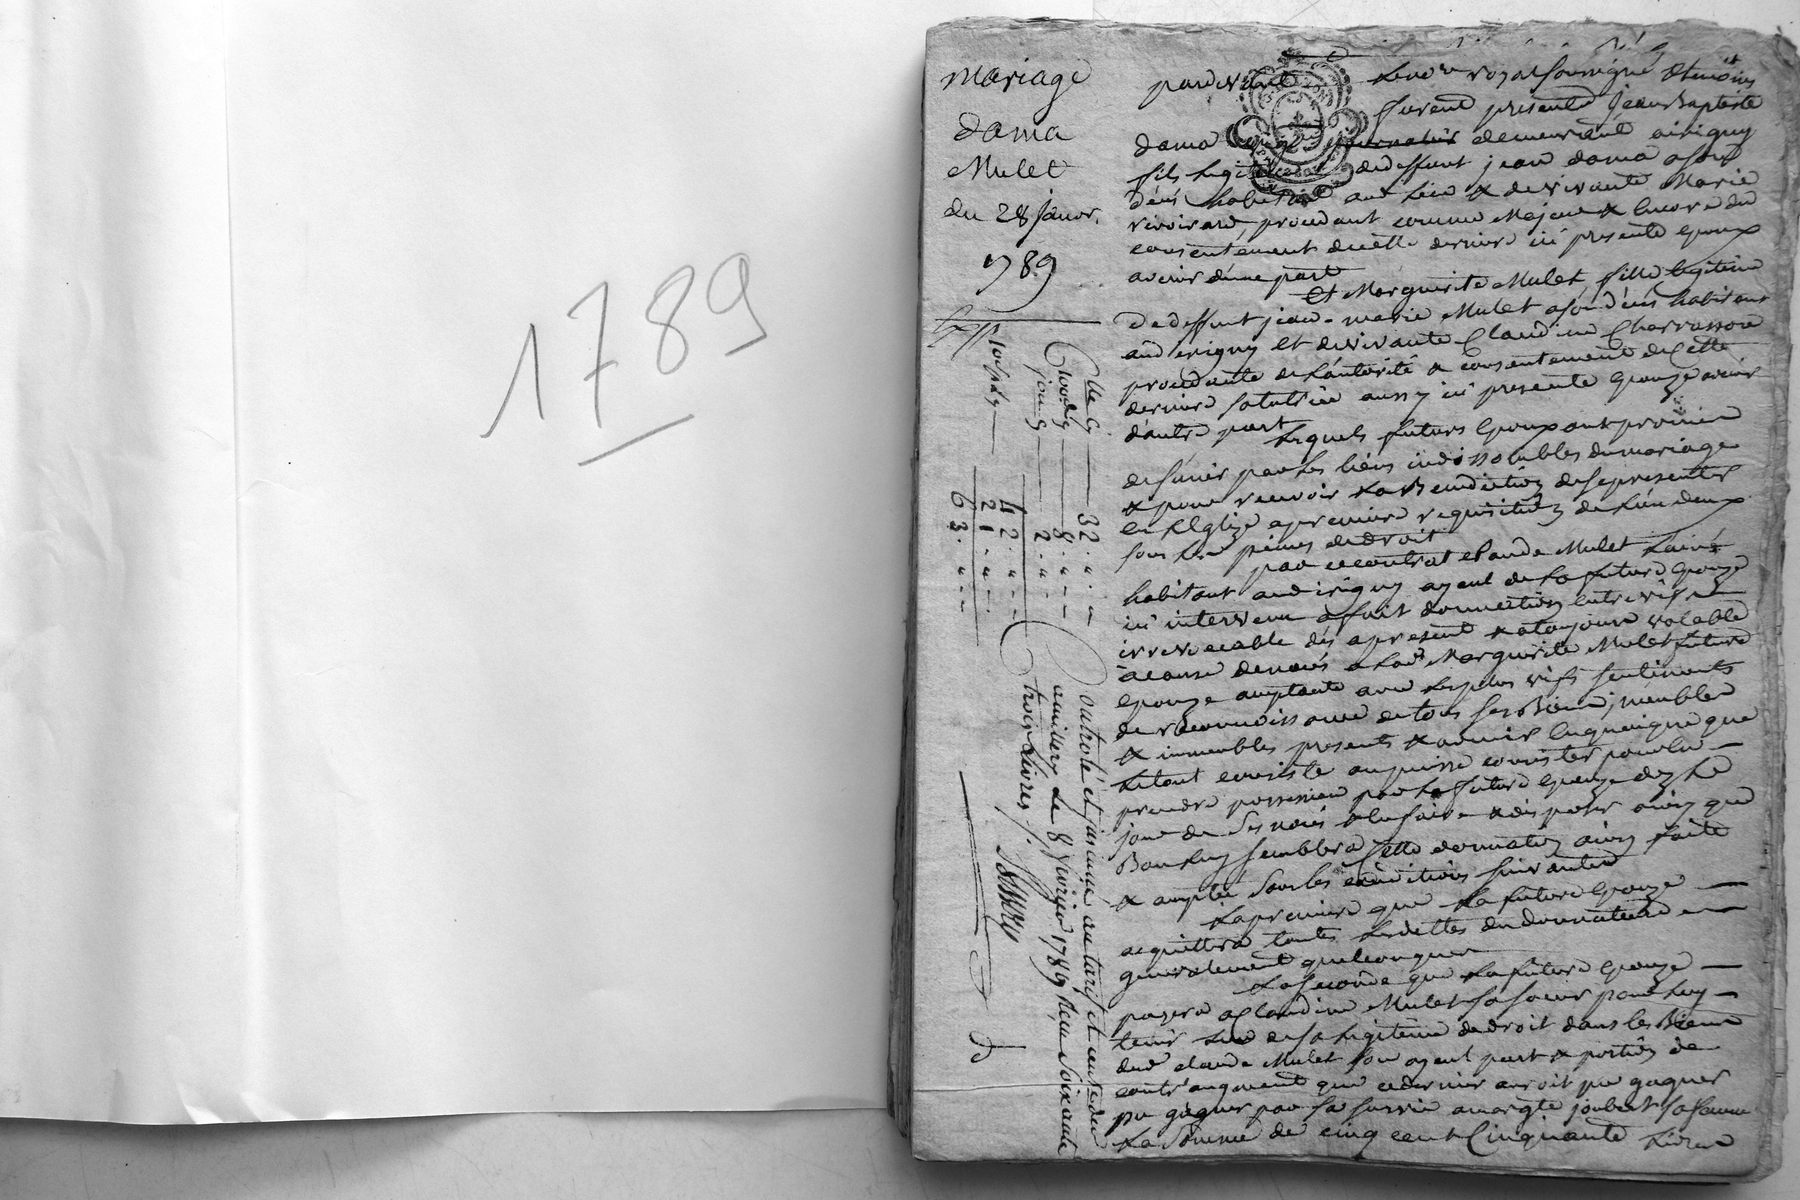 1789
mariage
dama
Mulet
du 28 janvr.
1789
pardevant le no.re royal soussigné & témoins
furent presents Jean Baptiste
dama journalier demeurant a irigny
fils legitime de deffunt jean dama a son
décés habitant aud lieu & de vivante Marie
revoirard, procedant comme Majeur & encore du
consentement de cette derniere ici presente epoux
avenir d'une part
Et Marguerite Mulet, fille legitime
de deffunt jean-marie Mulet a son décés habitant
aud irigny et de vivante Claudine Charrassou
procedante de l'autorité & consentement de cette
derniere sa tutrice aussy ici presente epouze avenir
d'autre part
Lequels futurs epoux ont promis
de s'unir par les liens indissolubles du mariage
& pour recevoir la Benediction de se presenter
en l'Eglize a premiere requisition de l'un deux
sous les peines de droit
par ce contrat claude Mulet l'ainé
habitant aud irigny ayeul de la future epouze
ici intervenu a fait donnation entre vifs
irrevocable dés apresent & a toujours valable
a cause de noces a lad. Marguerite Mulet future
epouze acceptante avec les plus vifs sentiments
de reconnoissance de tous ses Biens, meubles
& immeubles presents & avenir en quoique que
le tout consiste ou puisse consister pour en
prendre possession par la future epouze dez le
jour de ses noces & en faire & disposer ainsy que
Bon luy semblera Cette donnation ainsy faite
& acceptée sous les conditions suivantes
La premiere que la future epouze
acquittera toutes les dettes du donnateur
generalement quelconques
La seconde que la future epouze
payera a Claudine Mulet sa soeur pour luy
tenir lieu de sa legitime de droit dans les Biens
dud claude Mulet son ayeul part & portion de
contr'augment que ce dernier auroit pu gagner
pu gagner par sa survie a margte joubert sa femme
La somme de cinq cent Cinquante Livres
32
8
2
42
21
63
Controlé et insinué au tarif et centedu
a millery Le 8 fevrier 1789 Reçu soixante
trois Livres.